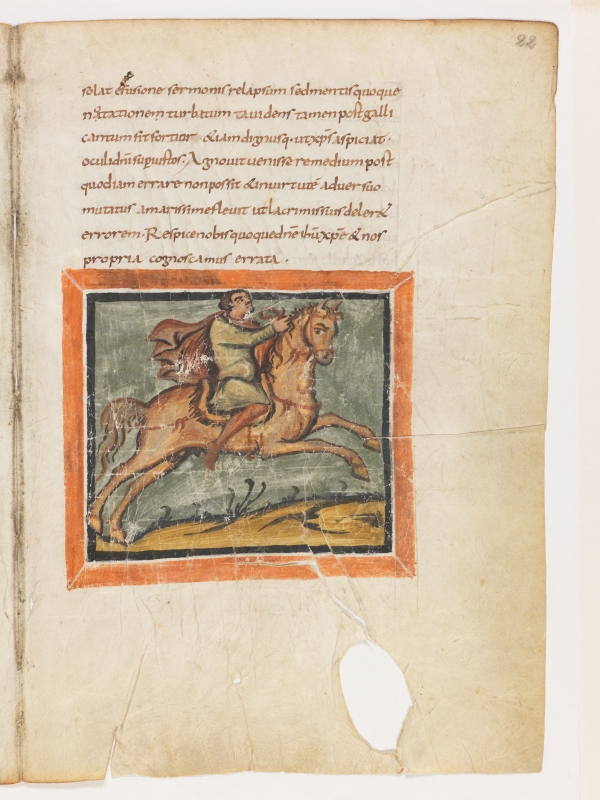 22
se lat effusione sermonis relapsum sed mentis quoque
tationem turbatum tauidens tamen post galli
cantum fit fortior & iam dignusq· ut xps aspiciat·
oculi dni sup iustos· Agnouit uenisse remedium post
quod iam errare non possit & in uirtute ad uer suo
mutatus amarissime fleuit ut lacrimis suis deler&
errorem· Respice nobis quoque dne ihu xpe & nos
propria cognoscamus errata·